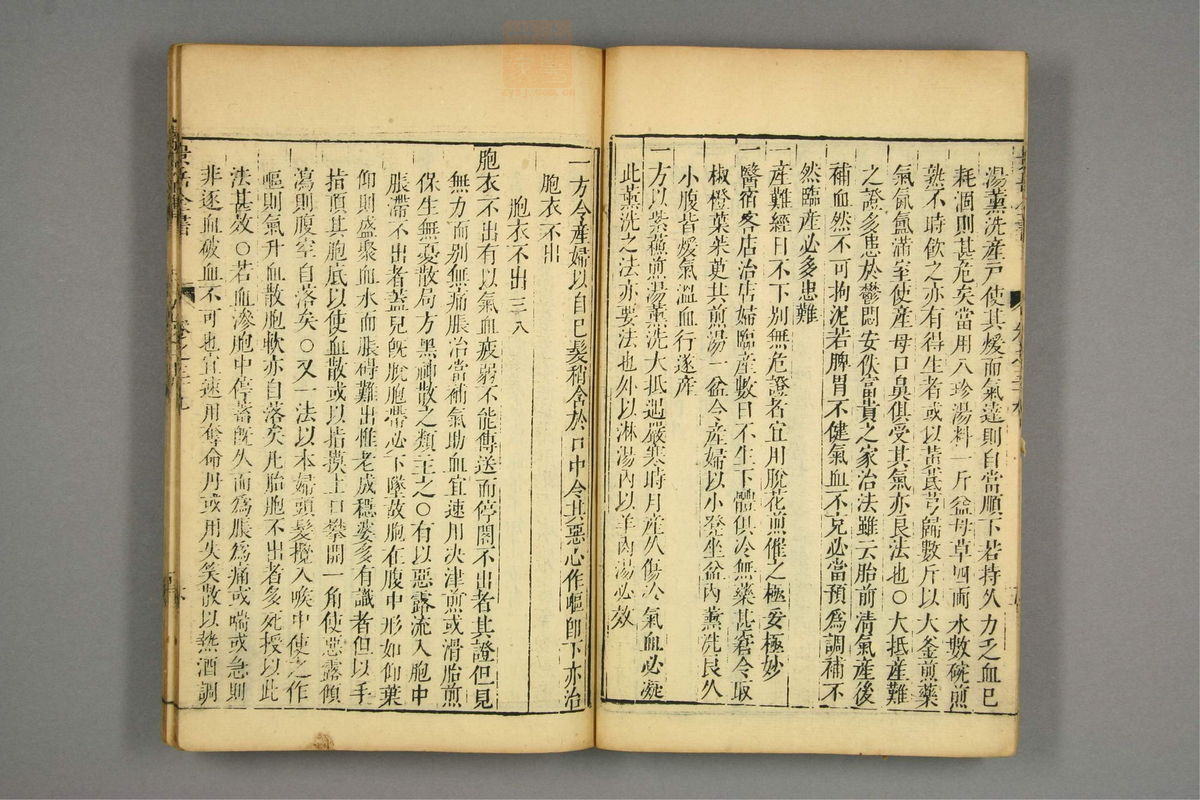 湯薰洗產戸使其煖而氣達則自當順下若持久力乏血已
耗涸則甚危矣當用八珍湯料一斤益母草四兩水數碗煎
熟不時飲之亦有得生者或以黃芪芎歸數斤以大釜煎藥
氣氤氳滿室使產母口鼻俱受其氣亦良法也○大抵產難
之證多患於鬱悶安佚富貴之家治法雖云胎前清氣產後
補血然不可拘泥若脾胃不健氣血不充必當預爲調補不
然臨產必多患難
一產難經日不下別無危證者宜用脫花煎催之極妥極妙
一醫宿客店治店婦臨產數日不生下體俱冷無藥甚窘令取
椒橙葉茱萸共煎湯一盆令產婦以小凳坐盆內薰洗良久
小腹皆煖氣溫血行遂產
一方以紫蘇煎湯薰洗大抵遇嚴寒時月產久傷冷氣血必凝
此薰洗之法亦要法也外以淋湯內以羊肉湯必效
一方令產婦以自已髮稍含於口中令其惡心作嘔卽下亦治
胞衣不出
胞衣不出三八
胞衣不出有以氣血疲弱不能傳送而停閣不出者其證但見
無力而別無痛脹治當補氣助血宜速用决津煎或滑胎煎
保生無憂散局方黑神散之類主之○有以惡露流入胞中
脹滯不出者蓋兒旣脫胞帶必下墜故胞在腹中形如仰葉
仰則盛聚血水而脹碍難出惟老成穩婆多有識者但以手
指頂其胞底以使血散或以指摸上口攀開一角使惡露傾
瀉則腹空自落矣○又一法以本婦頭髮攪入喉中使之作
嘔則氣升血散胞軟亦自落矣凡胎胞不出者多死授以此
法甚效○若血滲胞中停蓄旣久而爲脹爲痛或喘或急則
非逐血破血不可也宜速用奪命丹或用失笑散以熱酒調
景岳全書